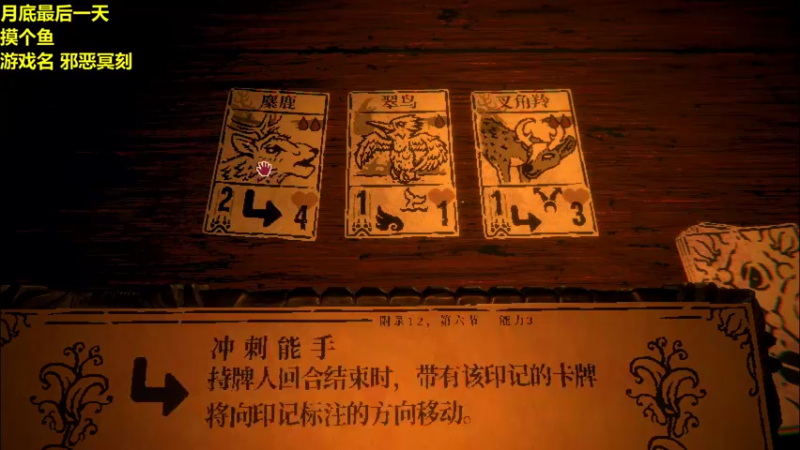 月底最后一天
摸个鱼
游戏名 邪恶冥刻
麋鹿
翠鸟
叉角羚
2
4
1
1
1
3
附录12, 第六节 能力3
冲刺能手
持牌人回合结束时，带有该印记的卡牌
将向印记标注的方向移动。